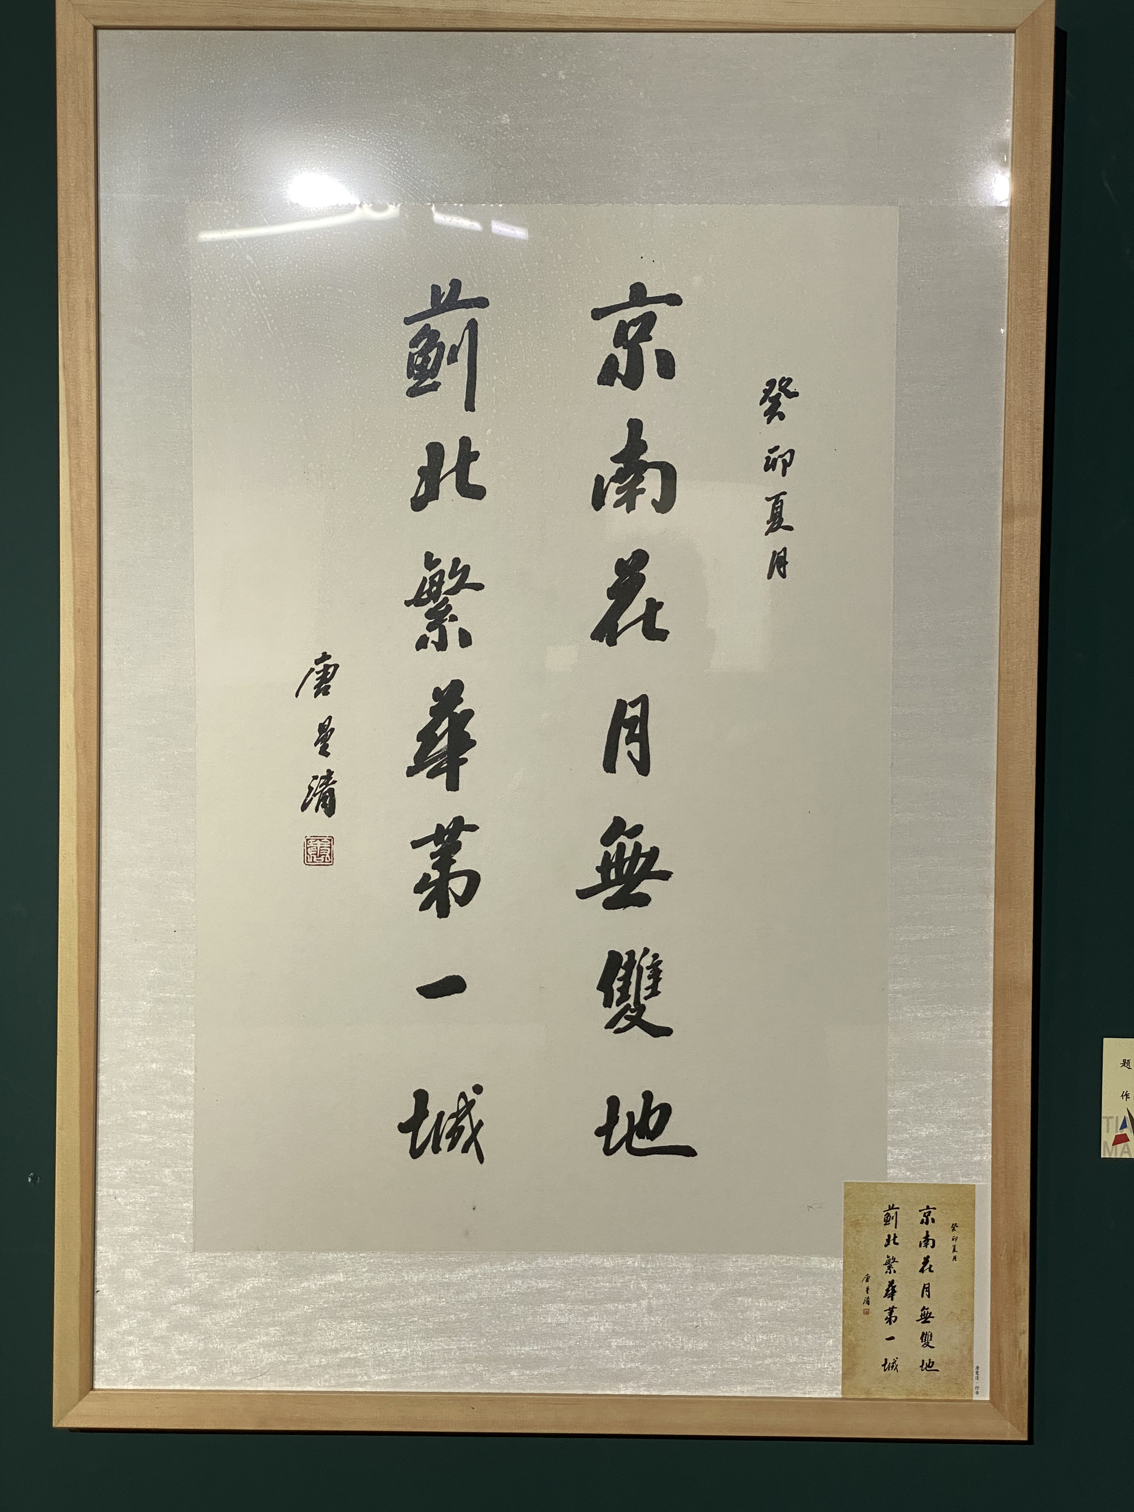 癸卯夏月
京南花月無雙地
薊北繁華第一城
唐景清
癸卯夏月
京南花月無雙地
薊北繁華第一城
题
作
TIA
MA